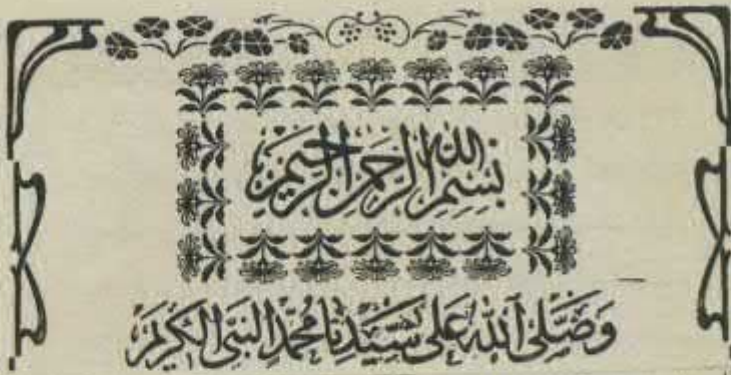 بسم الله الرحمن الرحيم
وَصَلَّى اللهُ عَلَى سَيِّدِنَا مُحَمَّدٍ النَّبِيِّ الْكَرِيمِ